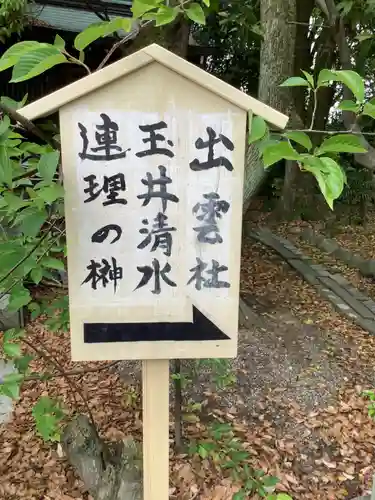 出雲社
玉井清水
連理の榊